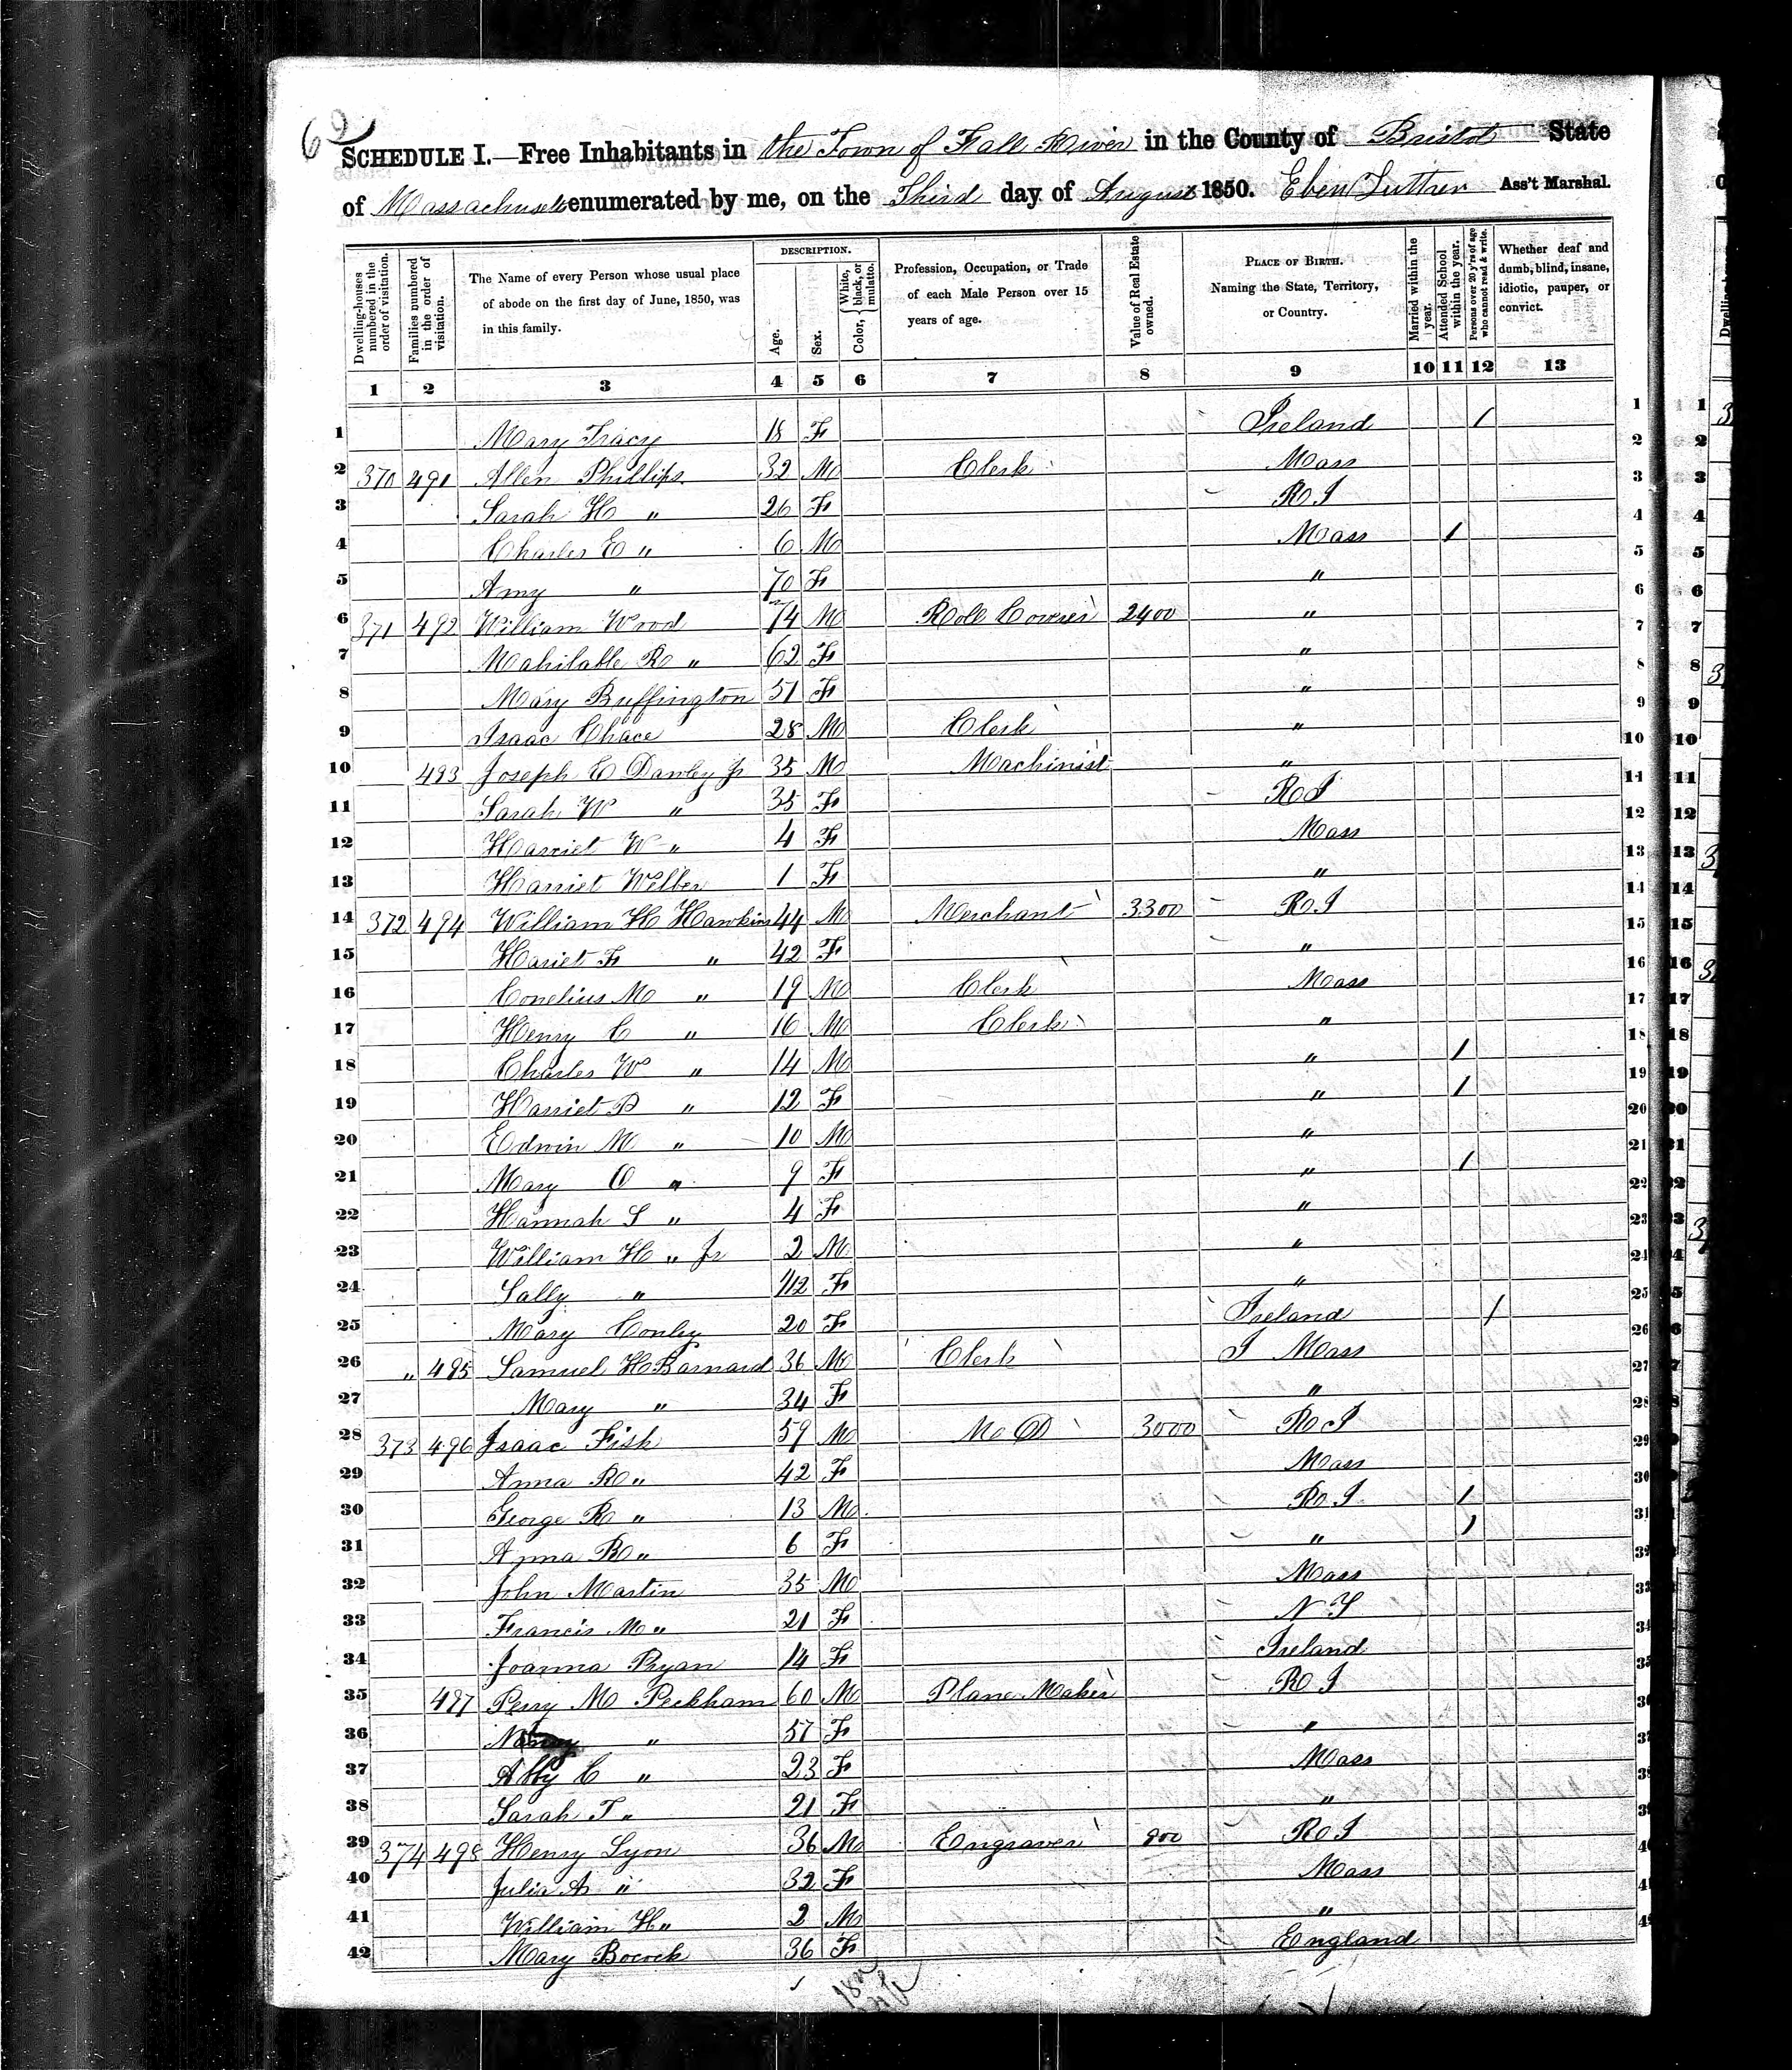 62
SCHEDULE I.—Free Inhabitants in the Town of Fall River in the County of Bristol State
of Massachusetts enumerated by me, on the Third day of August 1850. Eben Luther Ass't Marshal.
Dwelling-houses numbered in the order of visitation.
Families numbered in the order of visitation.
The Name of every Person whose usual place of abode on the first day of June, 1850, was in this family.
DESCRIPTION.
Age.
Sex.
Color, { White, black, or mulatto.
Profession, Occupation, or Trade of each Male Person over 15 years of age.
Value of Real Estate owned.
PLACE OF BIRTH. Naming the State, Territory, or Country.
Married within the year.
Attended School within the year.
Persons over 20 y'rs of age who cannot read & write.
Whether deaf and dumb, blind, insane, idiotic, pauper, or convict.
1 2 3 4 5 6 7 8 9 10 11 12 13
1 Mary Tracy 18 F Ireland / 1
2 370 491 Allen Phillips 32 M Clerk Mass 2
3 Sarah H " 26 F R I 3
4 Charles E " 6 M Mass / 4
5 Amy " 70 F " 5
6 371 492 William Wood 74 M Roll Coverer 2400 " 6
7 Mahitable R " 62 F " 7
8 Mary Buffington 51 F " 8
9 Isaac Chace 28 M Clerk " 9
10 493 Joseph C Danley Jr 35 M Machinist " 10
11 Sarah W " 35 F R I 11
12 Harriet W " 4 F Mass 12
13 Harriet Wilber 1 F " 13
14 372 494 William H Hawkins 44 M Merchant 3300 R I 14
15 Hariet F " 42 F " 15
16 Conelius M " 19 M Clerk Mass 16
17 Henry C " 16 M Clerk " 17
18 Charles W " 14 M " / 18
19 Harriet P " 12 F " / 19
20 Edwin M " 10 M " 20
21 Mary O " 9 F " / 21
22 Hannah S " 4 F " 22
23 William H " Jr 2 M " 23
24 Sally " 1/12 F " 24
25 Mary Conley 20 F Ireland / 25
26 " 495 Samuel H Barnard 36 M Clerk Mass 26
27 Mary " 34 F " 27
28 373 496 Isaac Fish 59 M M D 3000 R I 28
29 Anna R " 42 F Mass 29
30 George R " 13 M R I / 30
31 Anna R " 6 F " / 31
32 John Martin 35 M Mass
33 Francis M " 21 F N Y
34 Joanna Ryan 14 F Ireland
35 497 Perry M Peckham 60 M Plane Maker R I
36 " 57 F "
37 Abby C " 23 F Mass
38 Sarah T " 21 F "
39 374 498 Henry Lyon 36 M Engraver 900 R I
40 Julia A " 32 F Mass
41 William H " 2 M "
42 Mary Bocock 36 F England